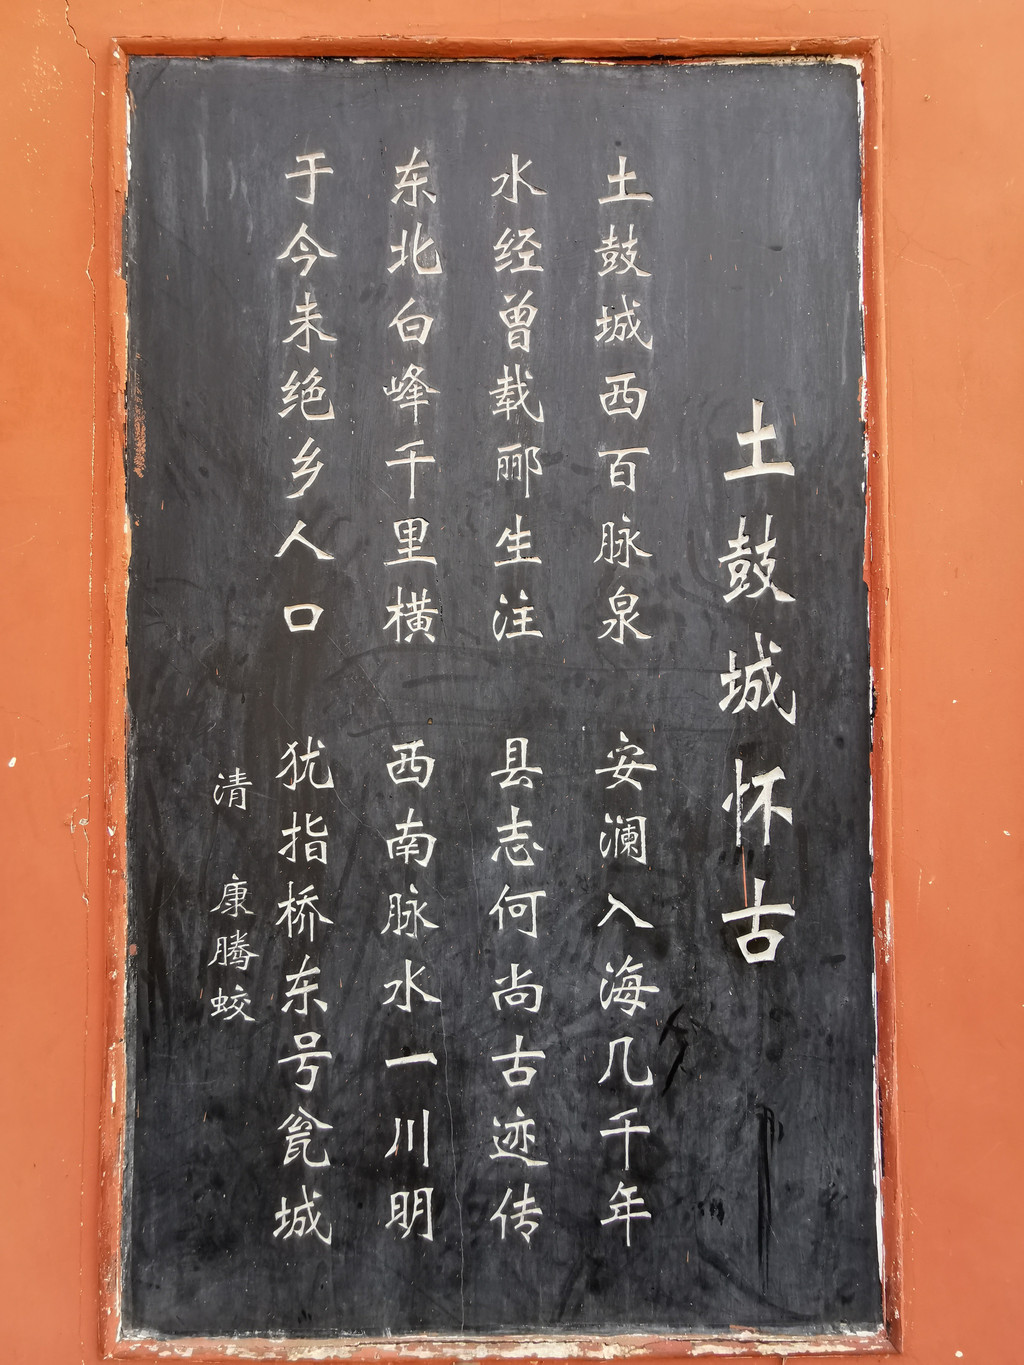 土鼓城怀古
土鼓城西百脉泉 安澜入海几千年
水经曾载郦生注 县志何尚古迹传
东北白峰千里横 西南脉水一川明
于今未绝乡人口 犹指桥东号瓮城
清 康腾蛟